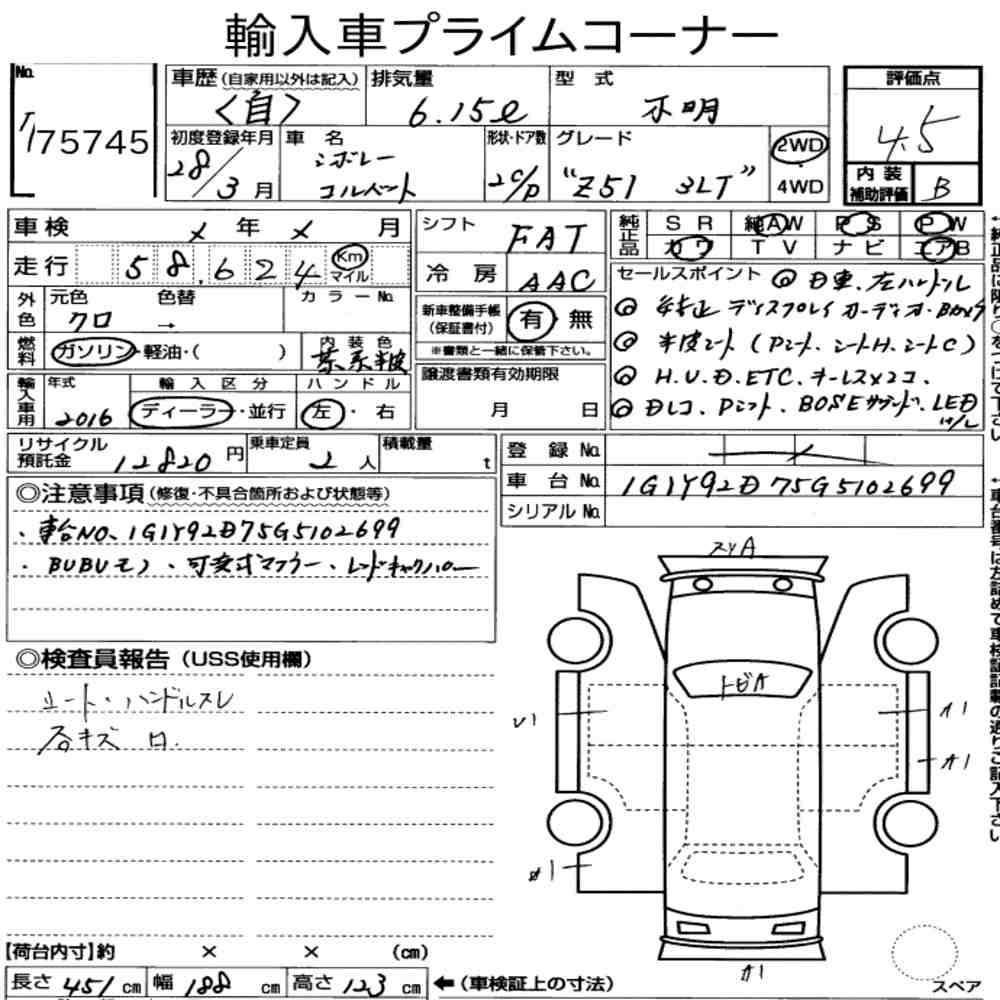 輸入車プライムコーナー
No.
75745
車歴 (自家用以外は記入)
<自>
排気量
6.15ℓ
型式
不明
評価点
4.5
内装補助評価 B
初度登録年月
28/3月
車名
シボレー
コルベット
形状・ドア数
2c/D
グレード
"Z51 3LT"
2WD
4WD
車検 年 月
走行 58,624 Km マイル
外色 元色 クロ 色替 → カラーNo.
燃料 ガソリン・軽油・( )
内装色
茶系半皮
輸入車用 年式 2016
輸入区分 ディーラー・並行
ハンドル 左・右
リサイクル預託金 12820円
乗車定員 2人
積載量 t
シフト FAT
冷房 AAC
新車整備手帳(保証書付) 有 無
※書類と一緒に保管下さい。
譲渡書類有効期限
月 日
純正品 SR 純AW PS PW
カワ TV ナビ エアB
セールスポイント ◎D車、左ハンドル
◎ 純正ディスプレイオーディオ・BOSE
◎ 半皮シート(Pシート、シートH、シートC)
◎ H.U.D.ETC.キーレス×2コ、
◎ Dレコ、Pシフト、BOSEサウンド、LED H/L
登録No.
車台No. 1G1Y92D75G5102699
シリアルNo.
◎注意事項(修復・不具合箇所および状態等)
・車台NO、1G1Y92D75G5102699
・BUBUモノ・可変式マフラー・レッドキャリパー
◎検査員報告(USS使用欄)
シート・ハンドルスレ
石キズ
スリA
トビA
A1
A1
A1
【荷台内寸】約 × × (cm)
長さ 451 cm 幅 188 cm 高さ 123 cm ←(車検証上の寸法)
スペア